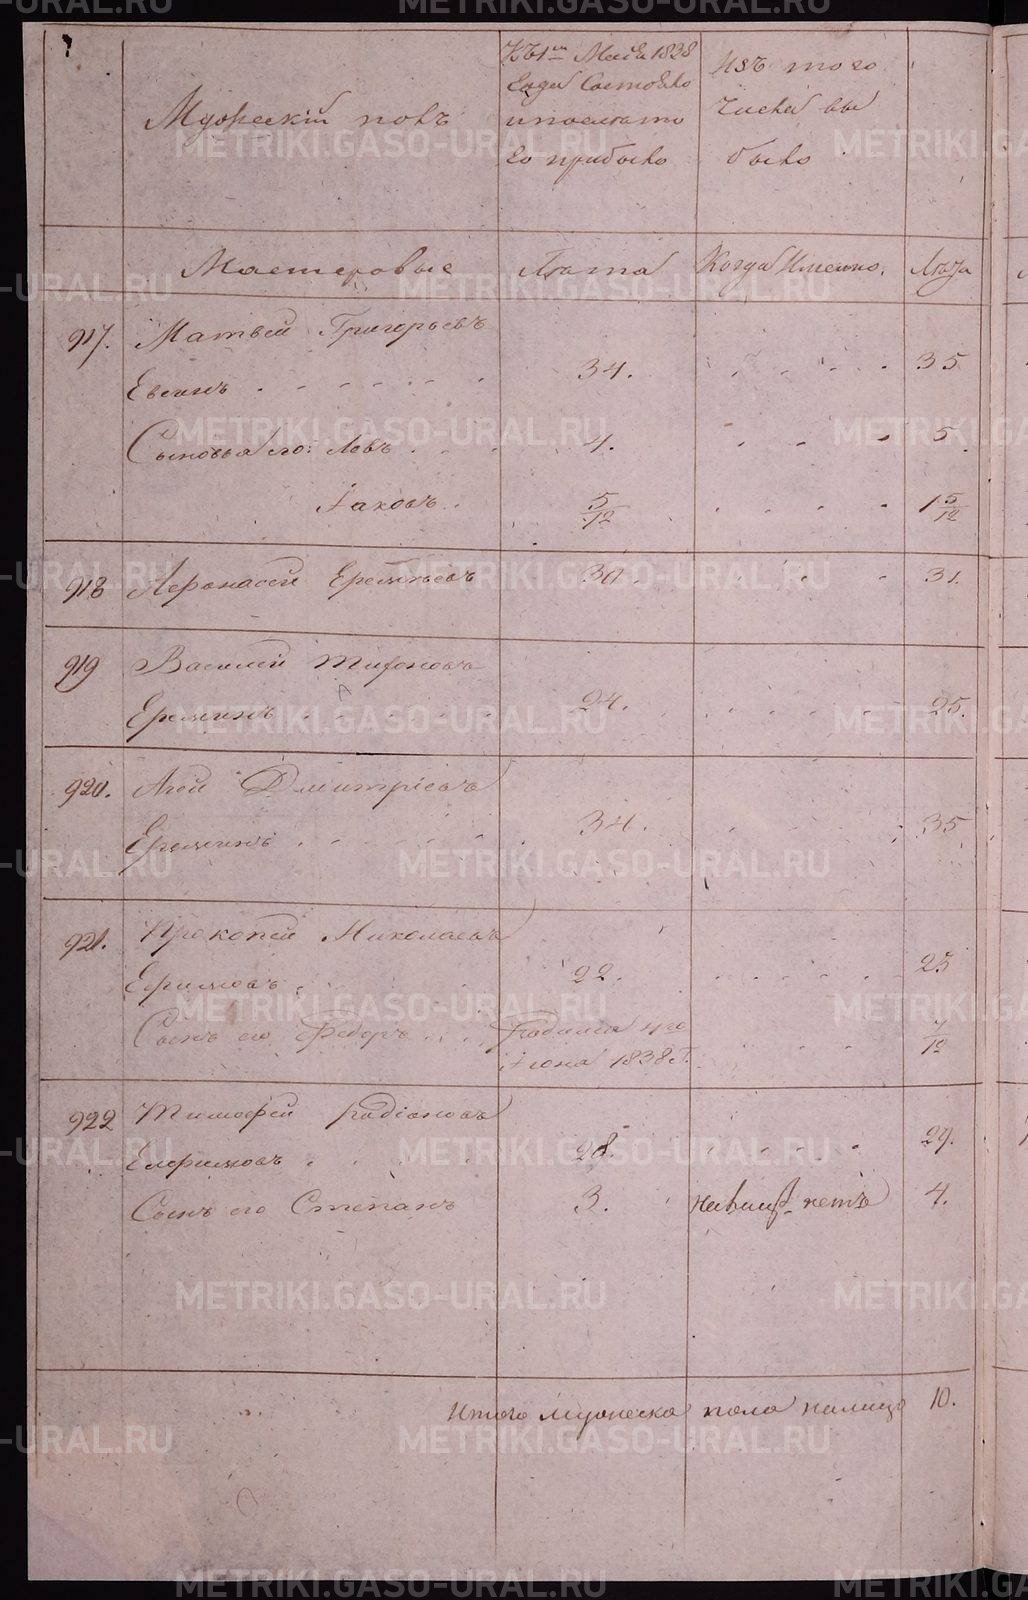 Мужескій полъ
Къ 1му Маія 1838
года Состояло
и после того
прибыло
Изъ того
числа вы
было
Мастеровые
Лѣта
Когда Именно.
Лѣта
917. Матвей Григорьевъ
Евсинъ . 34. 35
Сыновья его: Левъ . 4. 5
Іаковъ . 5/12 1 5/12
918 Афонасей Еремѣевъ 30. 31.
919 Василей Тифоновъ
Еремкинъ . 24. 25.
920. Агей Дмитріевъ
Еремкинъ . 34. 35
921. Прокопей Николаевъ
Ефимовъ . 22. 25
Сынъ его Федоръ . . . Родился 4го
Іюна 1838 г. 7/12
922 Тимофей Радіоновъ
Елфимовъ . 28. 29.
Сынъ его Степанъ 3. нетъ 4.
Итого мужеска пола налицо 10.
METRIKI.GASO-URAL.RU